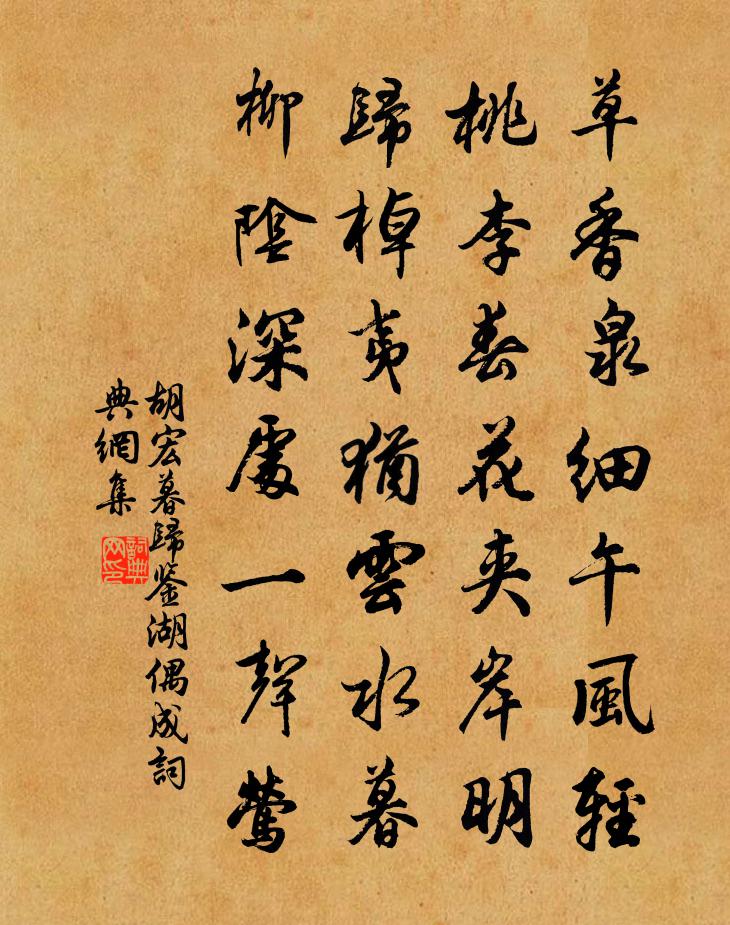 草香泉細午風輕
桃李春花夾岸明
歸棹夷猶雲水暮
柳陰深處一聲鶯
胡宏暮歸鉴湖偶成詞
典網集
詞典
网印